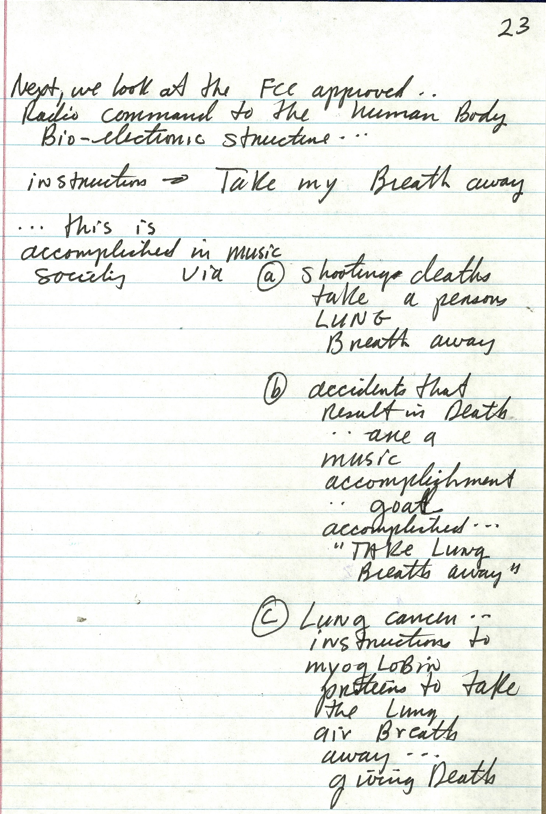 23
Next, we look at the FCC approved..
Radio command to the human Body
Bio-electronic structure...
instruction → Take my Breath away
... this is
accomplished in music
society via ⓐ shootings deaths
take a persons
LUNG
Breath away
ⓑ accidents that
result in Death
.. are a
music
accomplishment
.. goal
accomplished...
"TAKE Lung
Breath away"
ⓒ Lung cancer ..
instructions to
myogLoBin
proteins to take
the Lung
air Breath
away ...
giving Death